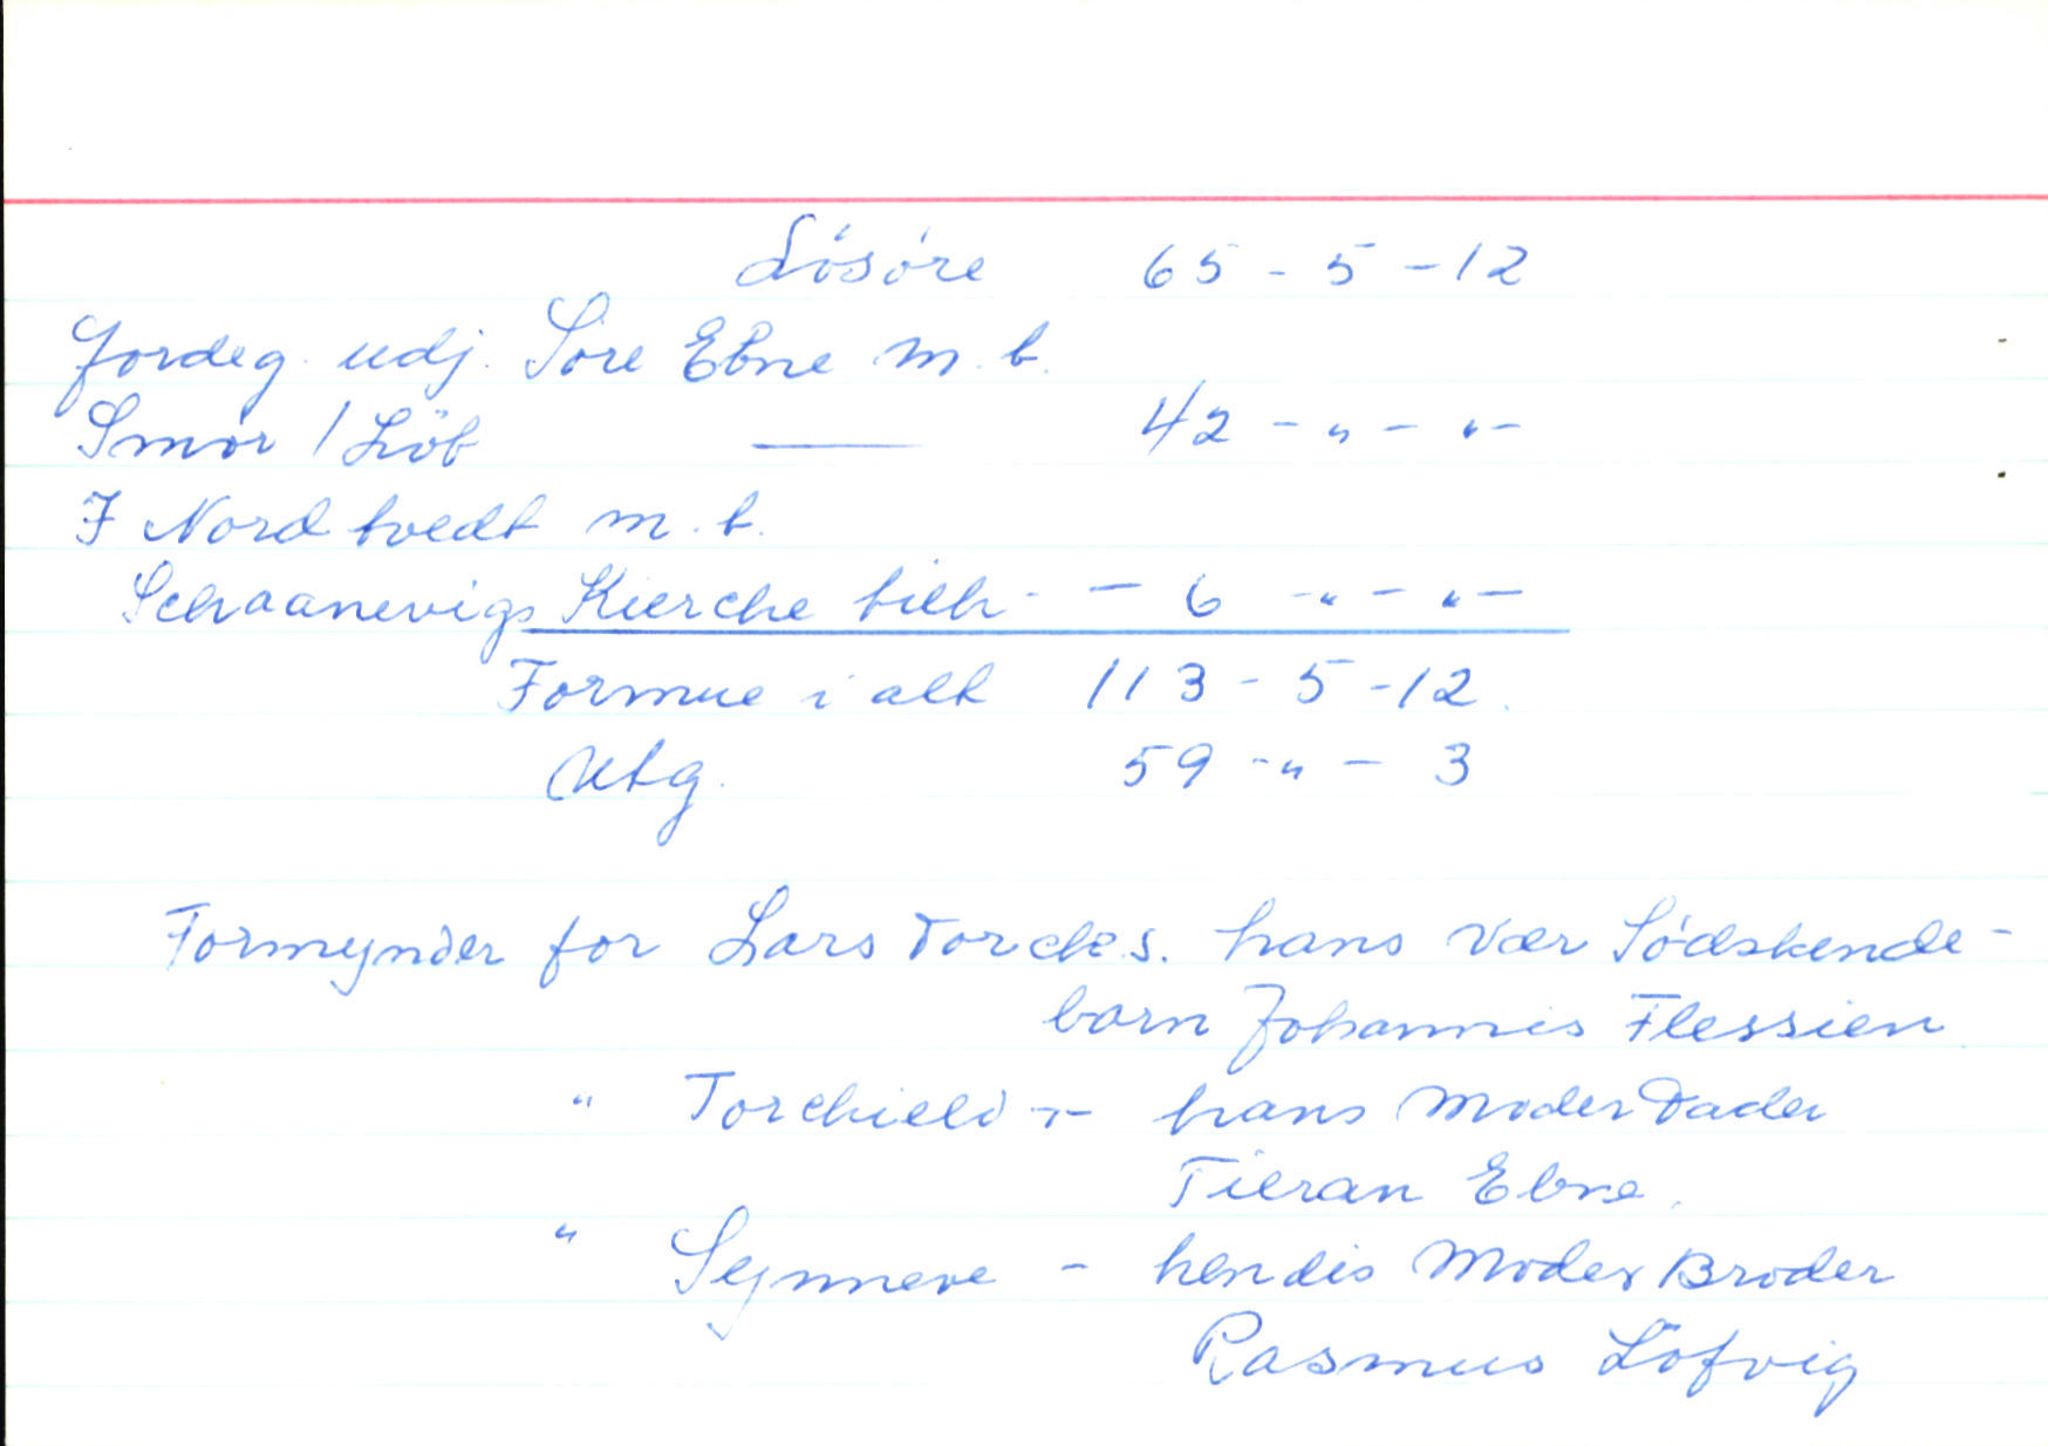 Lösöre 65 - 5 - 12
Jordeg. udj. Söre Ebne m. b.
Smör 1 Löb — 42 - " - " -
I Nordtvedt m. b.
Schaanevigs Kierche tilh. - - 6 - " - " -
Formue i alt 113 - 5 - 12.
Utg. 59 - " - 3
Formynder for Lars Torchs. hans Vær Södskende-
barn Johannis Flessien
" Torchield - hans Moder Fader
Tieran Ebne.
" Synneve - hendis Moder Broder
Rasmus Löfvig